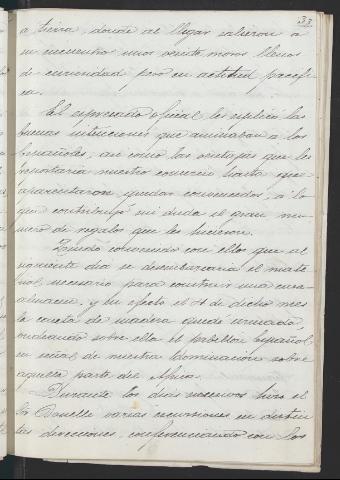 33
a tierra, donde al llegar salieron a
su encuentro unos veinte moros llenos
de curiosidad pero en actitud pacífi
ca.
El expresado oficial les explicó las
buenas intenciones que animaban a los
Españoles, así como las ventajas que les
reportaria nuestro comercio hasta que
aparentaron quedar convencidos, a lo
que contribuyó sin duda el gran nú-
mero de regalos que les hicieron.
Quedó convenido con ellos que al
siguiente dia se desembarcaria el mate
rial necesario para construir una casa
almacen, y en efecto el 4 de dicho mes
la caseta de madera quedó armada,
ondeando sobre ella el pabellon Español,
en señal de nuestra dominación sobre
aquella parte del Africa.
Durante los dias sucesivos hizo el
Sr Bonelli varias excursiones en distin
tas direcciones, conferenciando con los